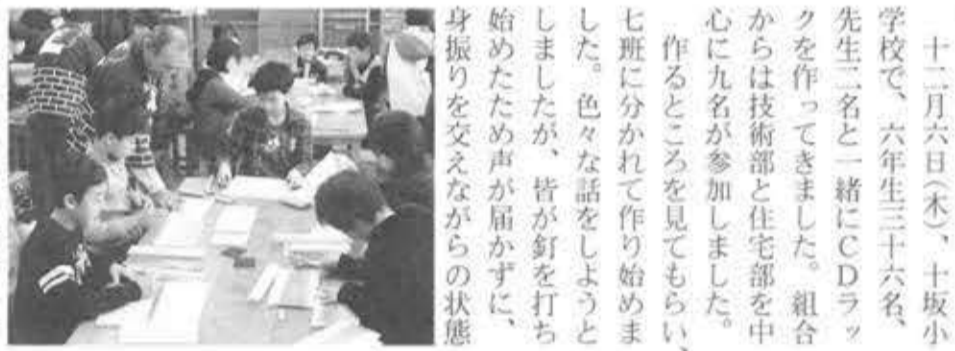 十二月六日(木)、十坂小
学校で、六年生三十六名、
先生二名と一緒にCDラッ
クを作ってきました。組合
からは技術部と住宅部を中
心に九名が参加しました。
作るところを見てもらい、
七班に分かれて作り始めま
した。色々な話をしようと
しましたが、皆が釘を打ち
始めたため声が届かずに、
身振りを交えながらの状態